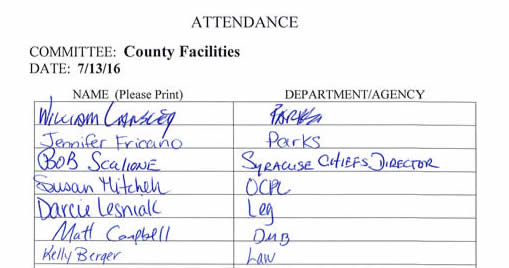 ATTENDANCE
COMMITTEE: County Facilities
DATE: 7/13/16
NAME (Please Print) DEPARTMENT/AGENCY
WILLIAM LANSLEY PARKS
Jennifer Fricano Parks
BOB SCALIONE SYRACUSE CHIEFS DIRECTOR
Susan Mitchell OCPL
Darcie Lesniak Leg
Matt Campbell DMB
Kelly Berger Law